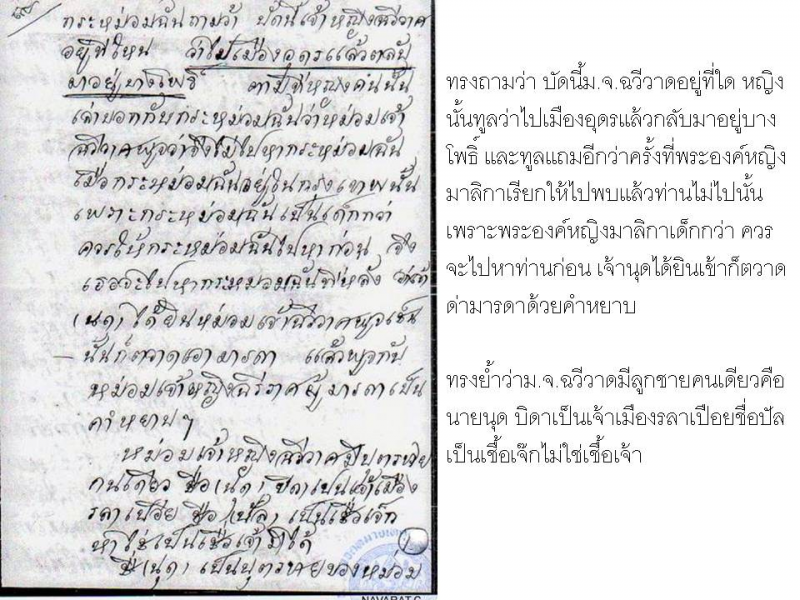 กระหม่อมฉันถามว่า บัดนี้เจ้าหญิงฉวีวาด
อยู่ที่ไหน ว่าไปเมืองอุดรแล้วกลับ
มาอยู่บางโพธิ์ ตามที่หญิงคนนั้น
เล่าบอกกับกระหม่อมฉันว่าหม่อมเจ้า
ฉวีวาดพูดว่าซึ่งไม่ไปหากระหม่อมฉัน
เมื่อกระหม่อมฉันอยู่ในกรุงเทพนั้น
เพราะกระหม่อมฉันเป็นเด็กกว่า
ควรให้กระหม่อมฉันไปหาก่อน จึง
เธอจะไปหากระหม่อมฉันทีหลัง
(นุด) ได้ยินหม่อมเจ้าฉวีวาดพูดเช่น
นั้นก็ตวาดเอามารดา แล้วพูดกับ
หม่อมเจ้าหญิงฉวีวาดผู้มารดาเป็น
คำหยาบๆ
หม่อมเจ้าหญิงฉวีวาดมีบุตรชาย
คนเดียว ชื่อ (นุด) บิดาเป็นเจ้าเมือง
รลาเปือย ชื่อ (ปัล) เป็นเชื้อเจ๊ก
หาใช่เป็นเชื้อเจ้ามิได้
(นุด) เป็นบุตรชายของหม่อม
NAVARAT.C
ทรงถามว่า บัดนี้ม.จ.ฉวีวาดอยู่ที่ใด หญิง
นั้นทูลว่าไปเมืองอุดรแล้วกลับมาอยู่บาง
โพธิ์ และทูลแถมอีกว่าครั้งที่พระองค์หญิง
มาลิกาเรียกให้ไปพบแล้วท่านไม่ไปนั้น
เพราะพระองค์หญิงมาลิกาเด็กกว่า ควร
จะไปหาท่านก่อน เจ้านุดได้ยินเข้าก็ตวาด
ด่ามารดาด้วยคำหยาบ
ทรงย้ำว่าม.จ.ฉวีวาดมีลูกชายคนเดียวคือ
นายนุด บิดาเป็นเจ้าเมืองรลาเปือยชื่อปัล
เป็นเชื้อเจ๊กไม่ใช่เชื้อเจ้า